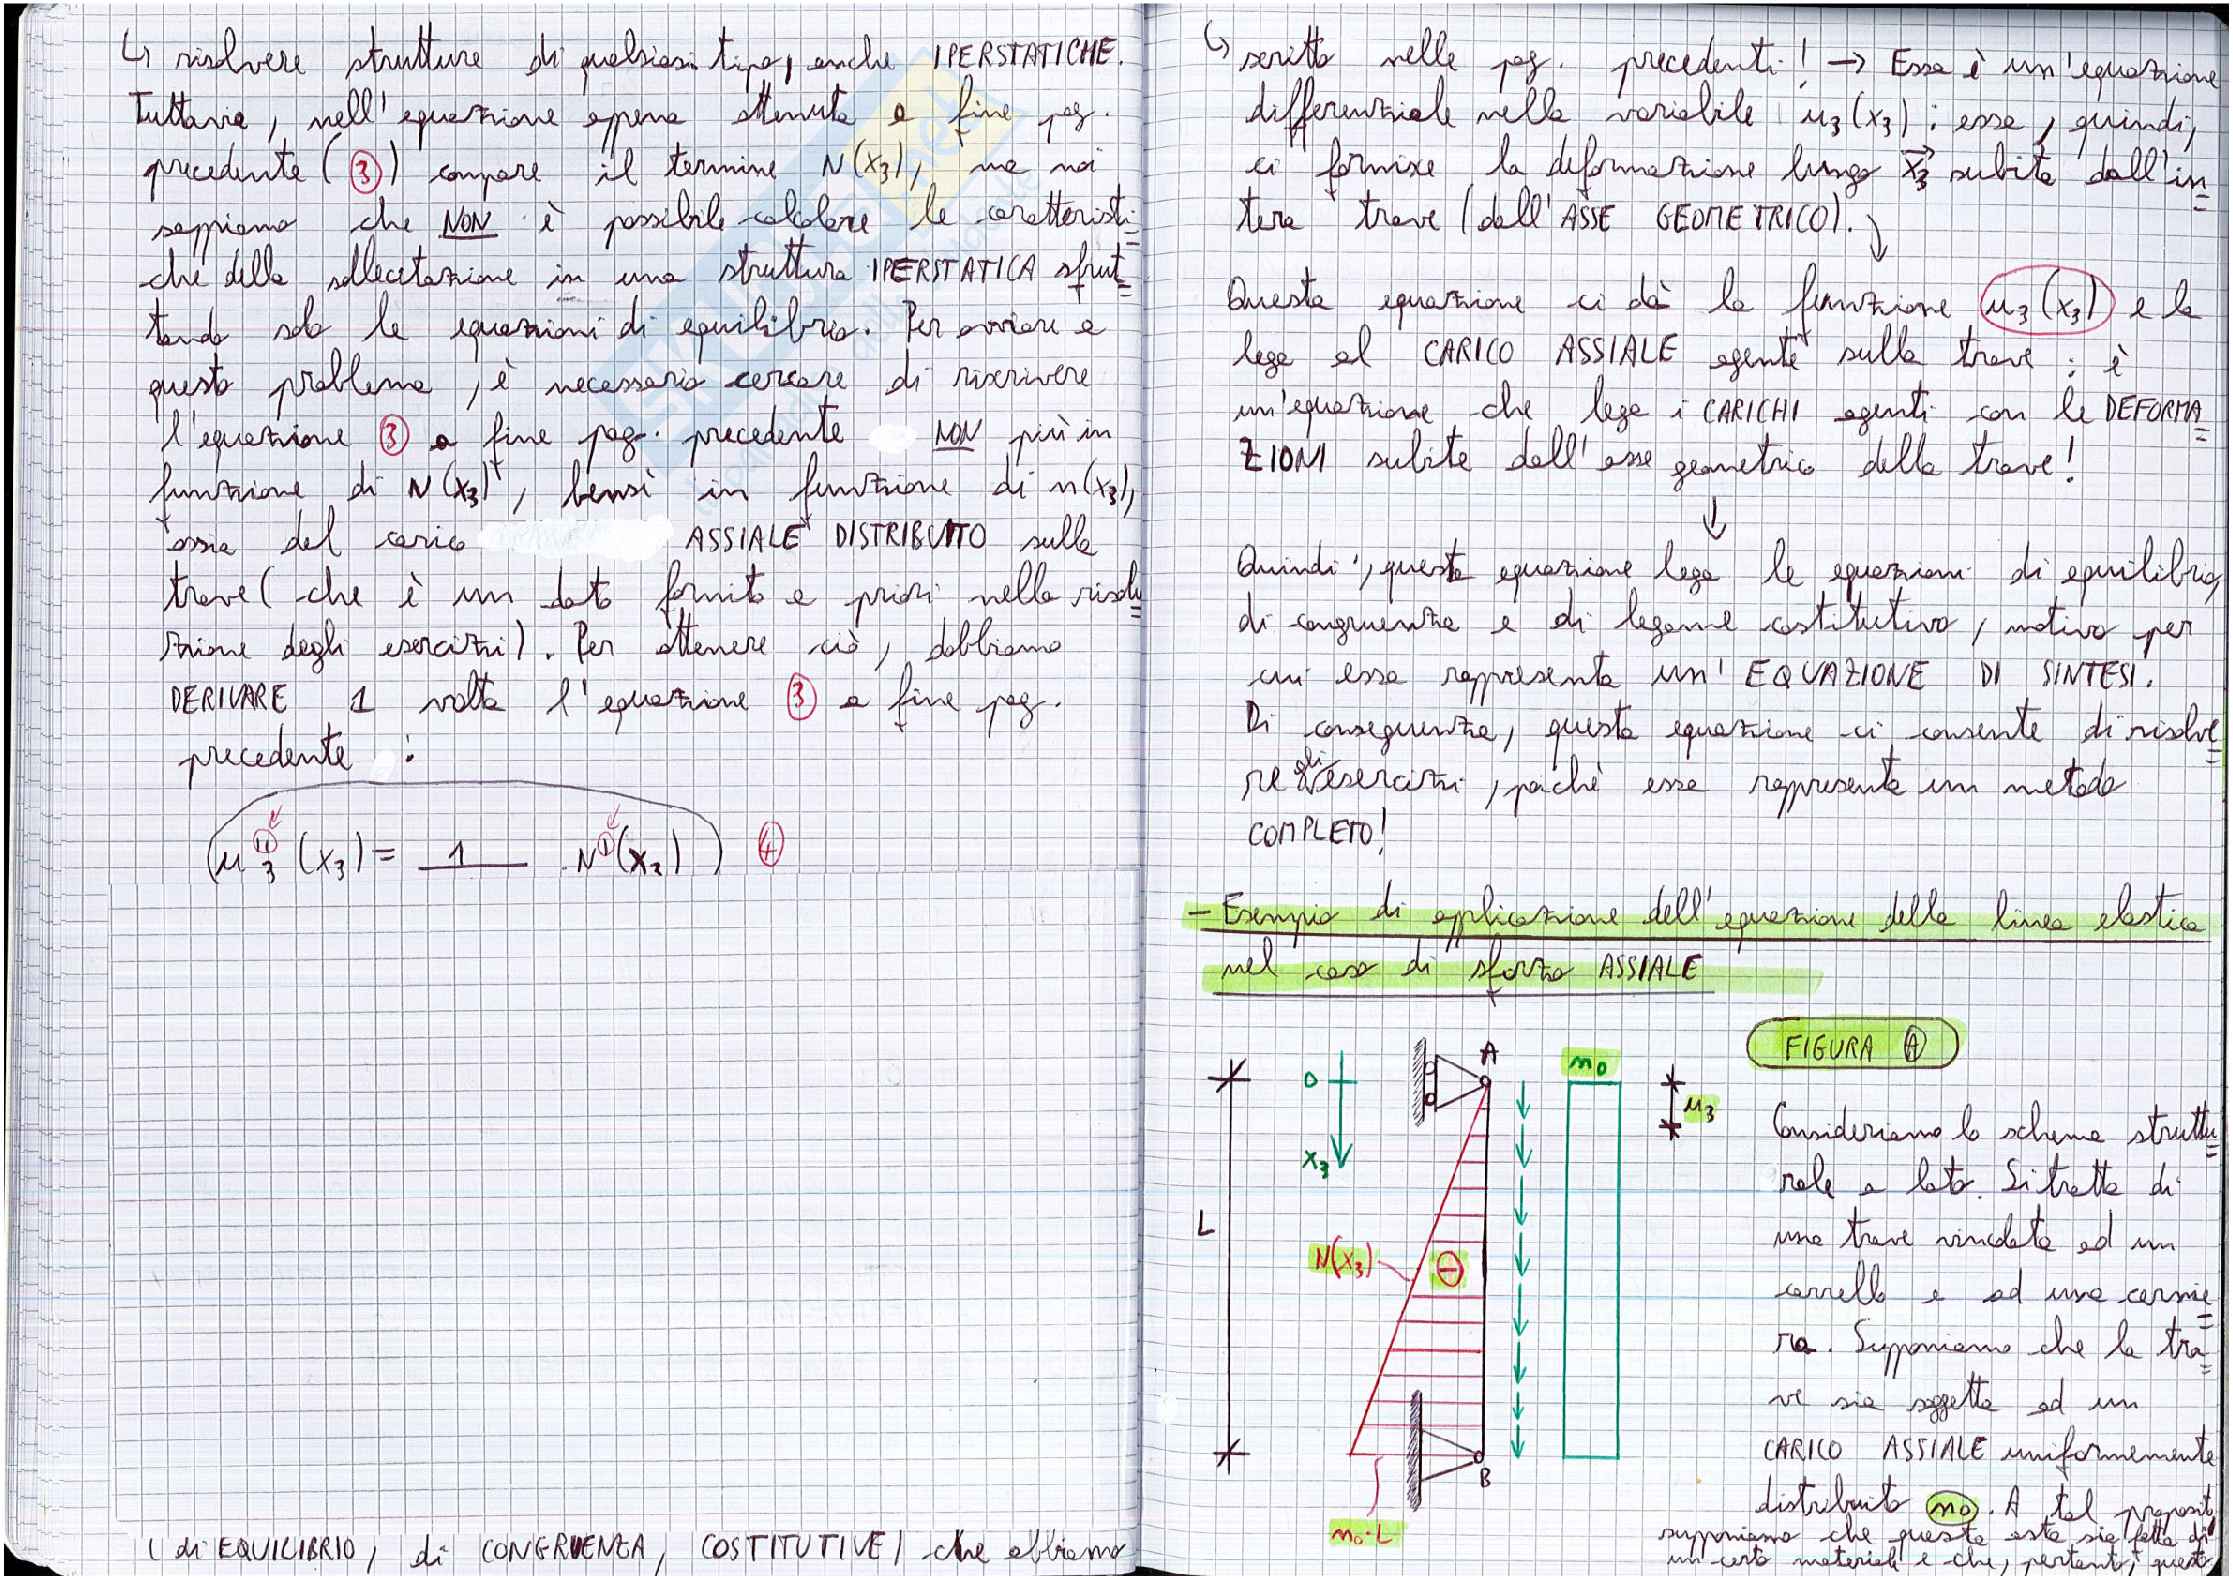 ↳ risolvere strutture di qualsiasi tipo, anche IPERSTATICHE.
Tuttavia, nell'equazione appena ottenuta a fine pag.
precedente (③) compare il termine N(x₃), ma noi
sappiamo che NON è possibile calcolare le caratteristi=
che della sollecitazione in una struttura IPERSTATICA sfrut=
tando solo le equazioni di equilibrio. Per ovviare a
questo problema, è necessario cercare di riscrivere
l'equazione ③ a fine pag. precedente NON più in
funzione di N(x₃), bensì in funzione di n(x₃),
ossia del carico ASSIALE DISTRIBUITO sulla
trave (che è un dato fornito a priori nella risolu=
zione degli esercizi). Per ottenere ciò, dobbiamo
DERIVARE 1 volta l'equazione ③ a fine pag.
precedente :
u₃''(x₃) = 1 N'(x₃) ④
(di EQUILIBRIO, di CONGRUENZA, COSTITUTIVE) che abbiamo
↳ scritto nelle pag. precedenti! → Essa è un'equazione
differenziale nella variabile u₃(x₃); essa, quindi,
ci fornisce la deformazione lungo x₃ subita dall'in=
tera trave (dall'ASSE GEOMETRICO).
Questa equazione ci dà la funzione u₃(x₃) e la
lega al CARICO ASSIALE agente sulla trave; è
un'equazione che lega i CARICHI agenti con le DEFORMA=
ZIONI subite dall'asse geometrico della trave!
↓
Quindi, questa equazione lega le equazioni di equilibrio,
di congruenza e di legame costitutivo, motivo per
cui essa rappresenta un'EQUAZIONE DI SINTESI.
Di conseguenza, questa equazione ci consente di risolve=
re gli esercizi, poiché essa rappresenta un metodo
COMPLETO!
- Esempio di applicazione dell'equazione della linea elastica
nel caso di sforzo ASSIALE
FIGURA Ⓐ
A
n₀
0
u₃
x₃
L
N(x₃)
⊖
B
n₀·L
Consideriamo lo schema struttu=
rale a lato. Si tratta di
una trave vincolata ad un
carrello e ad una cernie=
ra. Supponiamo che la tra=
ve sia soggetta ad un
CARICO ASSIALE uniformemente
distribuito n₀. A tal proposito,
supponiamo che questa asta sia fatta di
un certo materiale e che, pertanto, questo